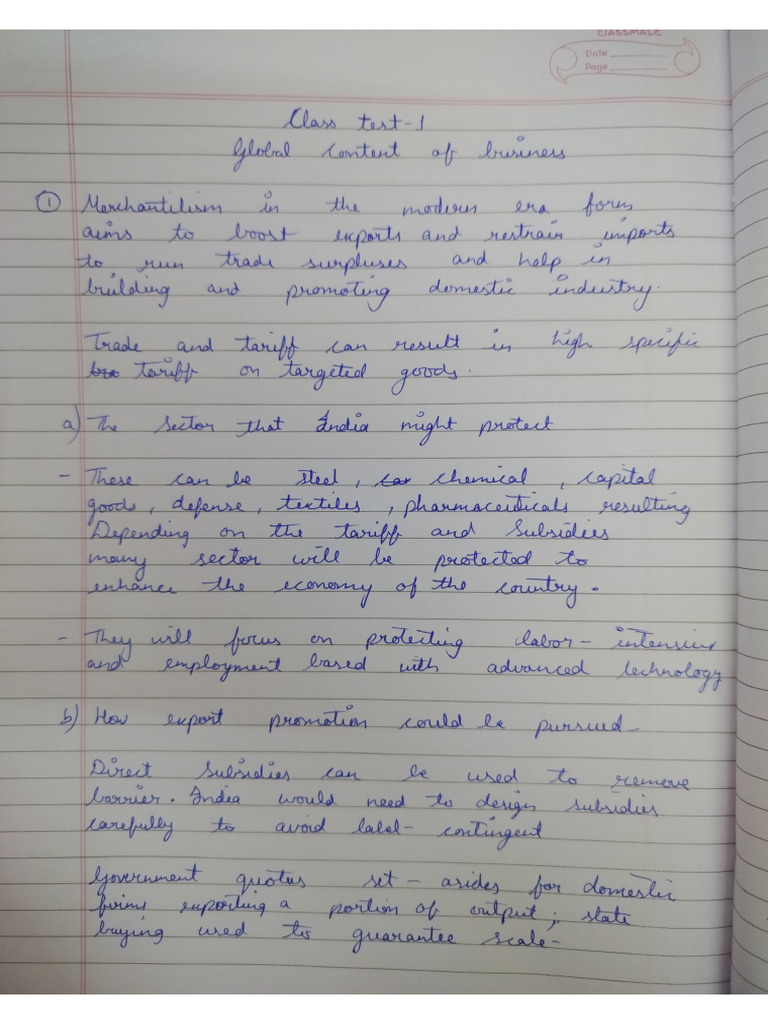 CLASSMATE
Date
Page
Class test-1
Global Content of business
① Merchantilism in the modern era form
aims to boost exports and restrain imports
to run trade surpluses and help in
building and promoting domestic industry.
Trade and tariff can result in high specific
tariff on targeted goods.
a) The sector that India might protect
- These can be steel, chemical, capital
goods, defense, textiles, pharmaceuticals resulting
Depending on the tariff and Subsidies
many sector will be protected to
enhance the economy of the country.
- They will focus on protecting labor- intensive
and employment based with advanced technology
b) How export promotion could be pursued-
Direct Subsidies can be used to remove
barrier. India would need to design subsidies
carefully to avoid label- contingent
Government quotas set-asides for domestic
firms exporting a portion of output; state
buying used to guarantee scale-